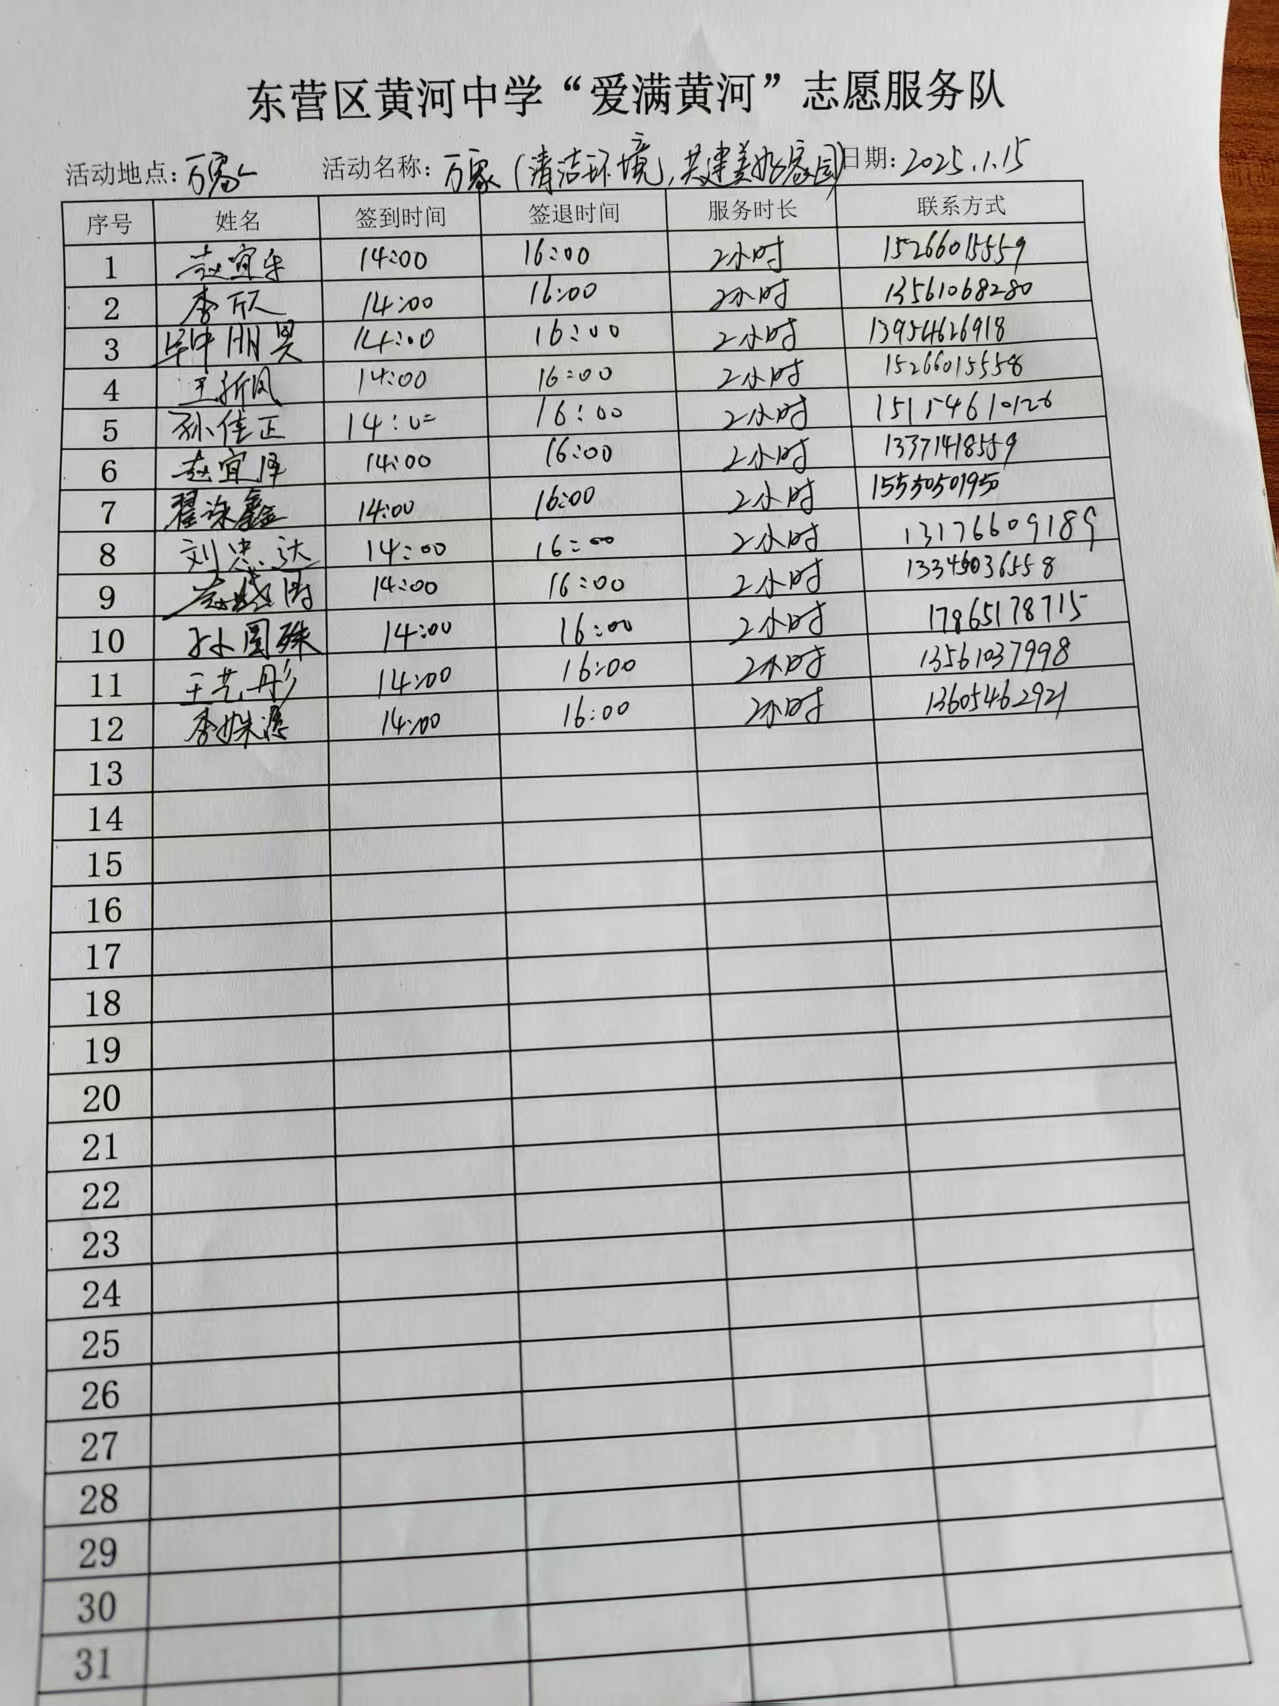 东营区黄河中学“爱满黄河”志愿服务队
活动地点：万家 活动名称：万家（清洁环境，共建美好家园） 日期：2025.1.15
序号 姓名 签到时间 签退时间 服务时长 联系方式
1 赵宜乐 14:00 16:00 2小时 15266015559
2 李欣 14:00 16:00 2小时 13561068280
3 14:00 16:00 2小时 13954626918
4 14:00 16:00 2小时 15266015558
5 孙佳正 14:00 16:00 2小时 15154610126
6 赵宜泽 14:00 16:00 2小时 13371418559
7 14:00 16:00 2小时 15550501950
8 刘忠达 14:00 16:00 2小时 13176609189
9 14:00 16:00 2小时
10 14:00 16:00 2小时 17865178715
11 王艺彤 14:00 16:00 2小时 13561037998
12 14:00 16:00 2小时 13605462921
13
14
15
16
17
18
19
20
21
22
23
24
25
26
27
28
29
30
31